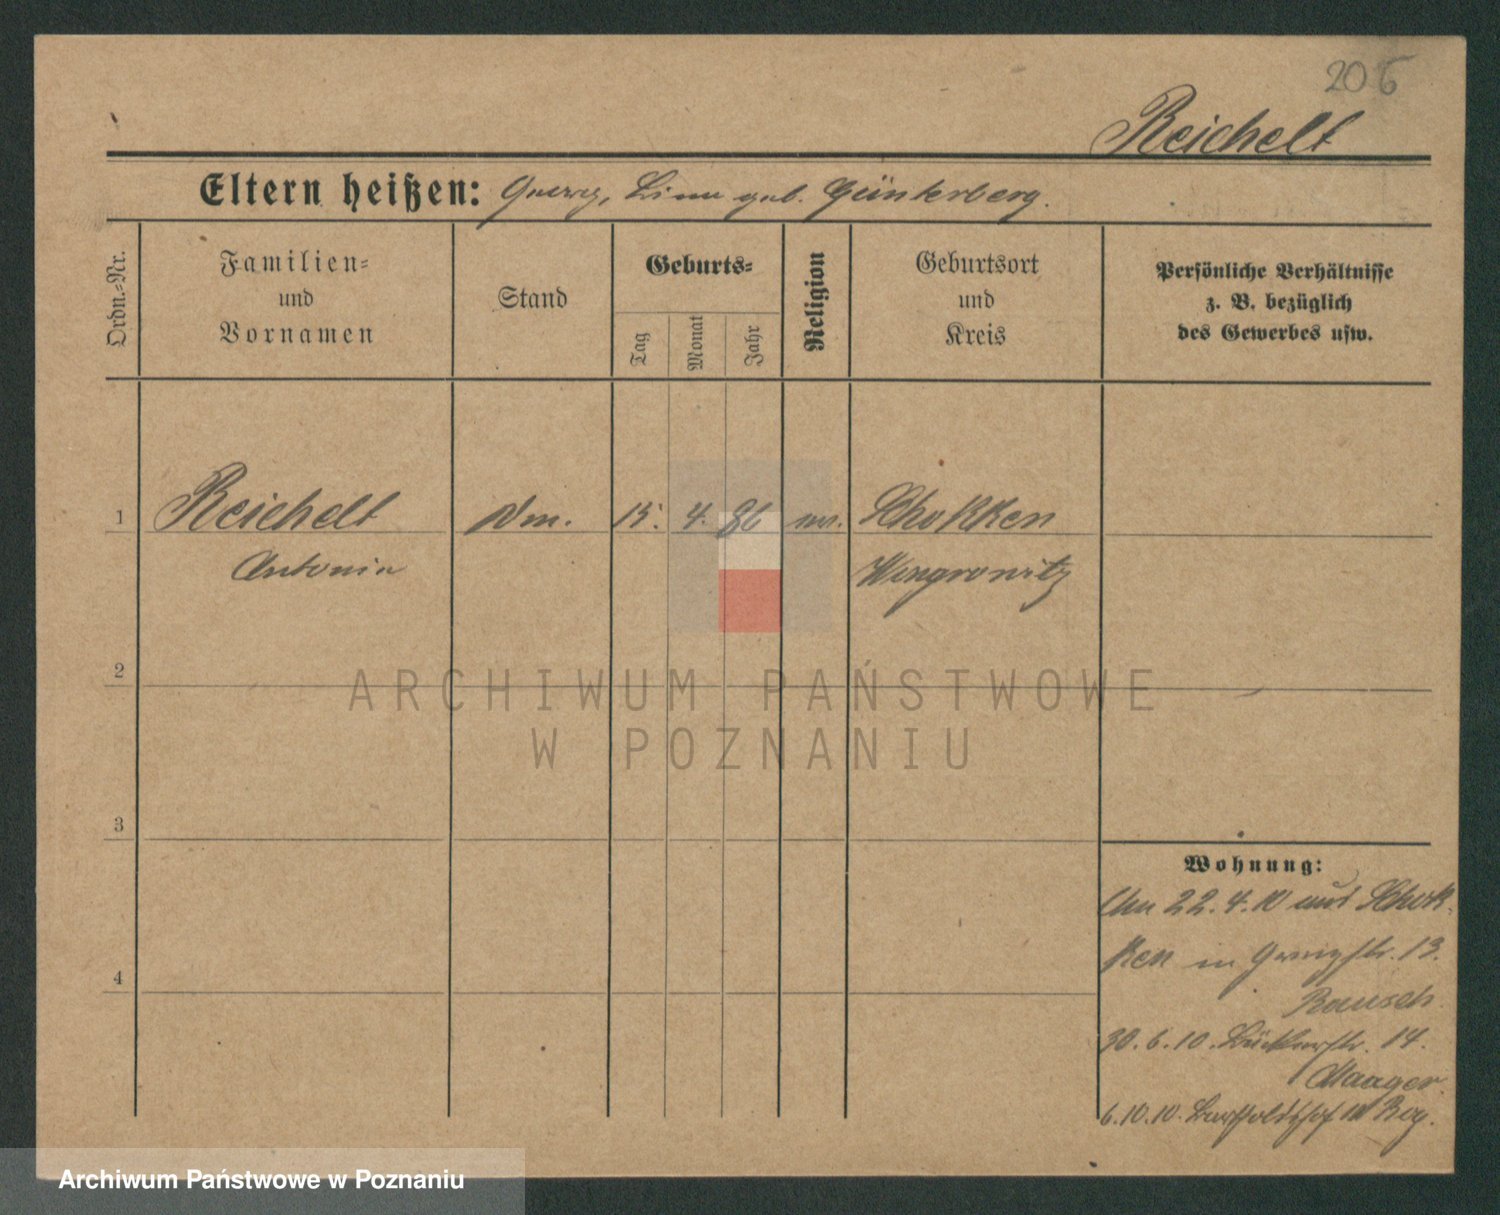 205
Reichelt
Eltern heißen: Georg, Lina geb. Günterberg.
Ordn.-Nr.
Familien-
und
Vornamen
Stand
Geburts-
Tag
Monat
Jahr
Religion
Geburtsort
und
Kreis
Persönliche Verhältnisse
z. B. bezüglich
des Gewerbes usw.
1 Reichelt 15. 4. 86 Schokken
Antonie Wongrowitz
2
3
4
Wohnung:
Am 22.4.10 aus Schok-
ken in 13.
Rausch.
30.6.10. 14.
6.10.10.
ARCHIWUM PAŃSTWOWE
W POZNANIU
Archiwum Państwowe w Poznaniu